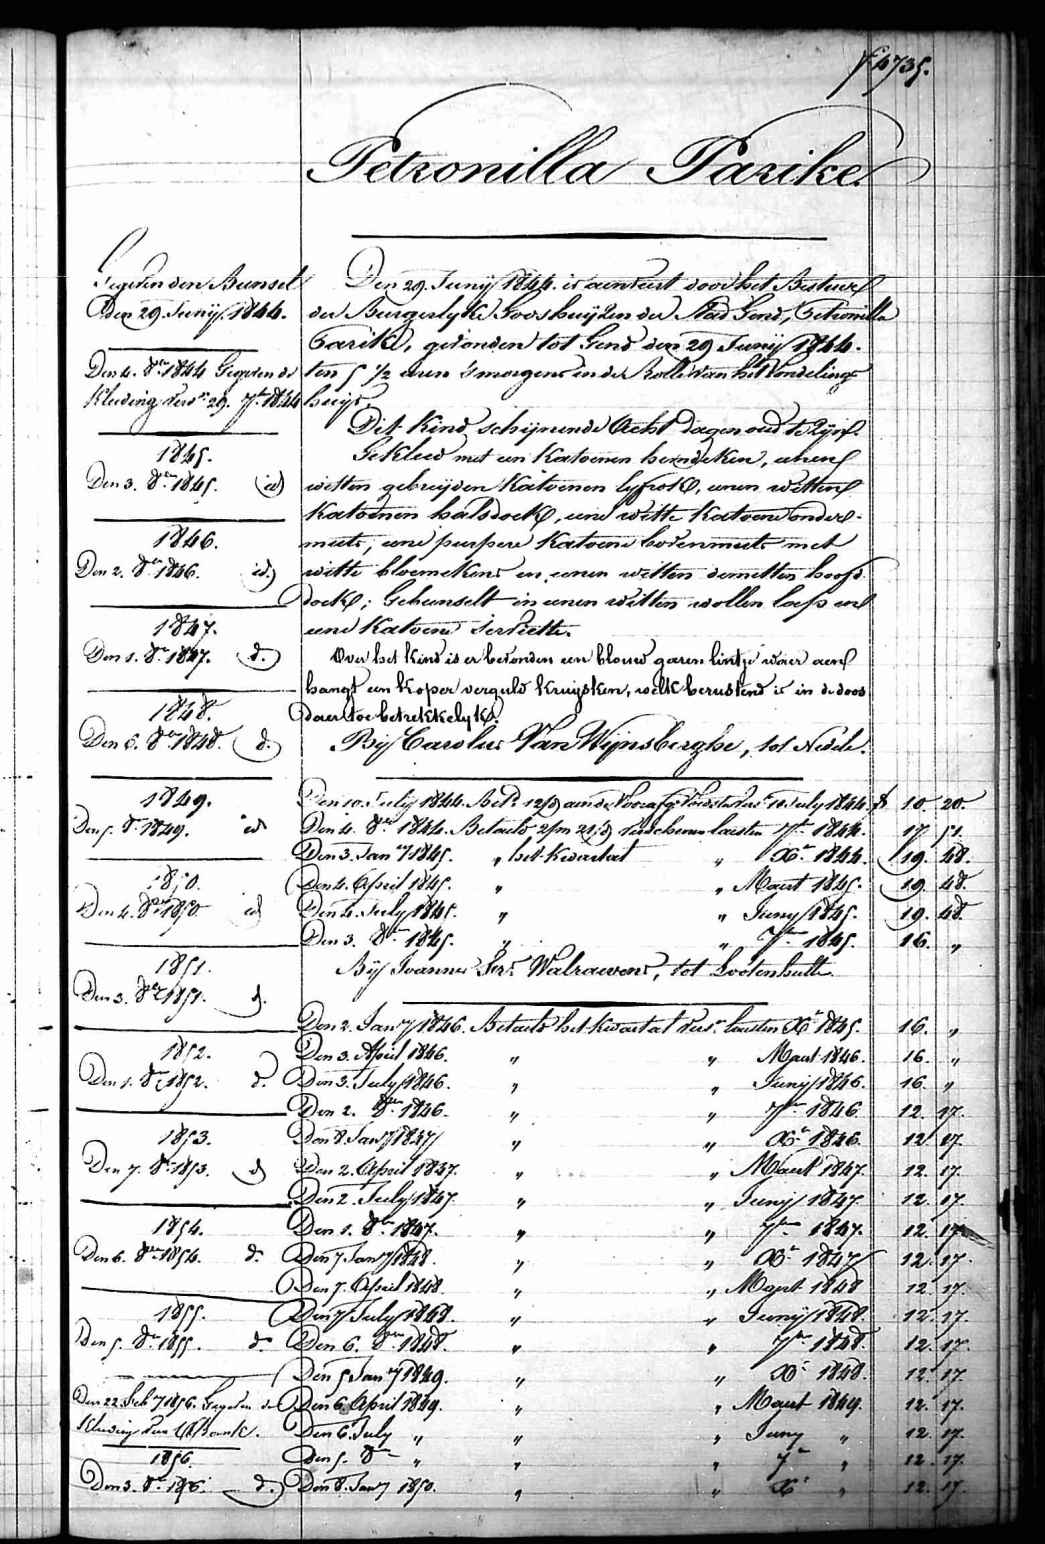 f 4735.
Petronilla Parike.
Gegeven den Bunsel
Den 29. Junij 1844.
Den 4. 8er 1844 Gegeven de
Kleeding vers. 29. 7r 1844
1845.
Den 3. 8er 1845. id
1846.
Den 2. 8er 1846. id.
1847.
Den 1. 8er 1847. d.
1848.
Den 6. 8er 1848. d.
1849.
Den 5. 8r 1849. id
1850.
Den 4. 8er 1850 id
1851.
Den 3. 8er 1851. d.
1852.
Den 1. 8r 1852. d.
1853.
Den 7. 8r 1853. d
1854.
Den 6. 8er 1854. d.
1855.
Den 5. 8r 1855. do
Den 22. Feby 1856. Gegeven de
Kleeding van
1856.
Den 3. 8r 1856. d.
Den 29. Junij 1844. is aenveert door het Bestuer
der Burgerlyke Godshuijzen der Stad Gend, Petronilla
Parike, gevonden tot Gend den 29 Junij 1844.
ten 5 1/2 uren 's morgens in de Rolle van het Vondelings
huijs
Dit Kind schijnende Acht dagen oud te zijn.
Gekleed met een Katoenen hemdeken, eenen
witten gebreijden Katoenen lyfrok, eenen witten
Katoenen halsdoek, eene witte Katoene onder-
muts, eene purpere Katoene bovenmuts met
witte bloemekens en eenen witten demetten hoofd
doek; Gebunselt in eenen witten wollen loef en
eene Katoene serviette.
Over het kind is er bevonden een blouw garen lintje waer aen
hangt een koper verguld kruijsken, welk berustend is in de doos
daer toe betrekkelijk.
Bij Carolus Van Wijnsberghe, tot Nevele.
Den 10. July 1844. Bet. 12 aen de Voorafg. vers. 10 July 1844. f 10 20
Den 4. 8er 1844. Betaeld 2/m 21/d verschenen laesten 7r 1844. 17 51.
Den 3. Jany 1845. " het Kwartael " Xr 1844. 19. 48.
Den 4. April 1845. " " Maert 1845. 19. 48.
Den 4. July 1845. " " Juny 1845. 19. 48
Den 3. 8r 1845. " " 7r 1845. 16. "
Bij Joannes Walraevens, tot Lootenhulle.
Den 2. Jany 1846. Betaeld het kwartael vers. laesten Xr 1845. 16. "
Den 3. April 1846. " " Maert 1846. 16. "
Den 3. July 1846. " " Junij 1846. 16. "
Den 2. 8er 1846. " " 7r 1846. 12. 17.
Den 8. Jany 1847 " " Xr 1846. 12 17
Den 2. April 1847. " " Maert 1847. 12. 17.
Den 2. July 1847. " " Junij 1847. 12. 17.
Den 1. 8r 1847. " " 7r 1847. 12. 17
Den 7 Jany 1848. " " Xr 1847 12. 17.
Den 7. April 1848. " " Maert 1848 12. 17.
Den 7 July 1848. " " Junij 1848. 12. 17.
Den 6. 8er 1848. " " 7r 1848. 12. 17.
Den 5 Jany 1849. " " Xr 1848. 12. 17
Den 6 April 1849. " " Maert 1849. 12. 17.
Den 6 July " " " Juny " 12. 17.
Den 5. 8r " " " 7r " 12. 17.
Den 8. Jany 1850. " " Xr " 12. 17.